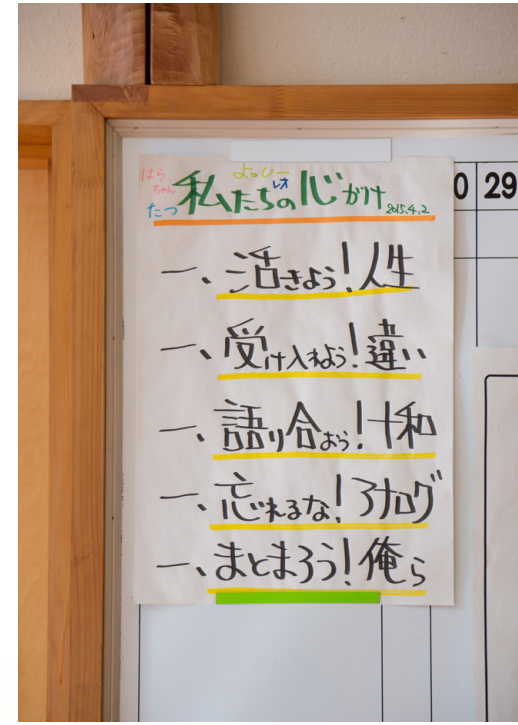 はらちゃん
よっぴー
レオ
たつ
私たちの心がけ
2015.4.2
一、活きよう！人生
一、受け入れよう！違い
一、語り合おう！十和
一、忘れるな！アナログ
一、まとまろう！俺ら
0 29